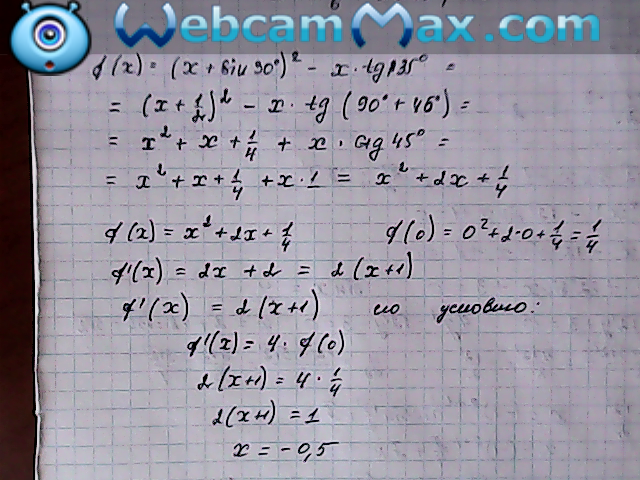 WebcamMax.com
f(x) = (x + sin 30°)² - x · tg 135° =
= (x + 1/2)² - x · tg (90° + 45°) =
= x² + x + 1/4 + x · ctg 45° =
= x² + x + 1/4 + x · 1 = x² + 2x + 1/4
f(x) = x² + 2x + 1/4 f(0) = 0² + 2·0 + 1/4 = 1/4
f'(x) = 2x + 2 = 2(x+1)
f'(x) = 2(x+1) по условию:
f'(x) = 4 · f(0)
2(x+1) = 4 · 1/4
2(x+1) = 1
x = -0,5